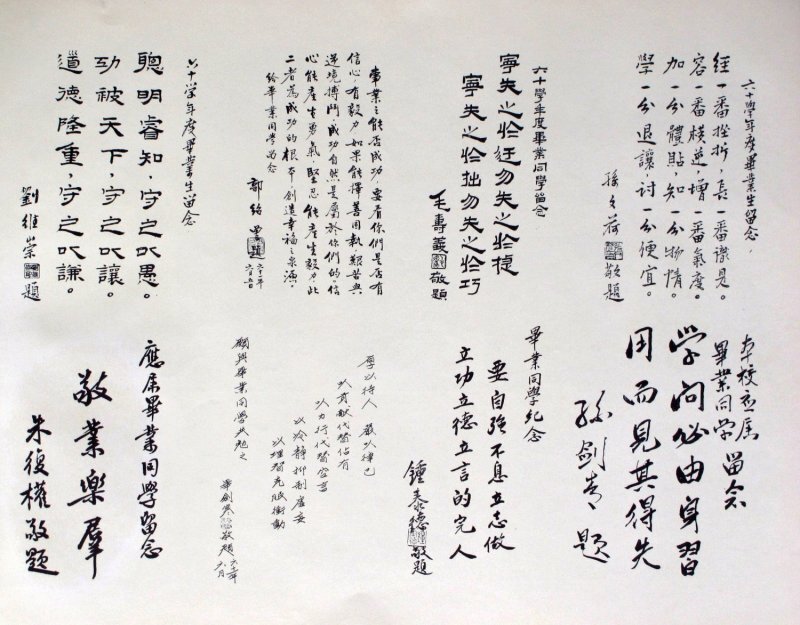 六十學年度畢業生留念.
經一番挫折，長一番識見。
容一番橫逆，增一番氣度。
加一分體貼，知一分物情。
學一分退讓，討一分便宜。
荷 敬題
六十學年度畢業同學留念
寧失之於迂勿失之於捷
寧失之於拙勿失之於巧
毛壽 敬題
事業之能否成功，要看你們是否有
信心，有毅力，如果能擇善固執，艱苦與
逆境搏鬥，成功自然是屬於你們的。信
心能產生勇氣，堅忍能產生毅力，此
二者為成功的根本，創造幸福之泉源，
給畢業同學留念
郭紹 題
六十學年度畢業生留念
聰明睿知，守之以愚。
功被天下，守之以讓。
道德隆重，守之以謙。
劉維崇 題
本校應屆
畢業同學留念
学问必由身習
用而見其得失
孫劍青題
畢業同學纪念
要自強不息立志做
立功立德立言的完人
鍾泰德 敬題
厚以待人 嚴以律己
以貢献代替佔有
以力行代替空言
以冷靜抑制虛妄
以堆智克服衝動
願與畢業同學共勉之
華劍 敬題 六一年六月
應屆畢業同學留念
敬業樂羣
朱復權敬題